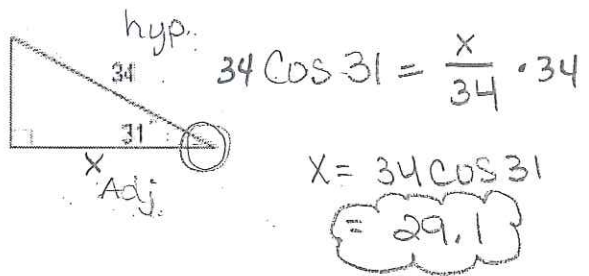 hyp.
34
31°
x
Adj.
34 Cos 31 = x/34 · 34
x = 34 cos 31
= 29.1